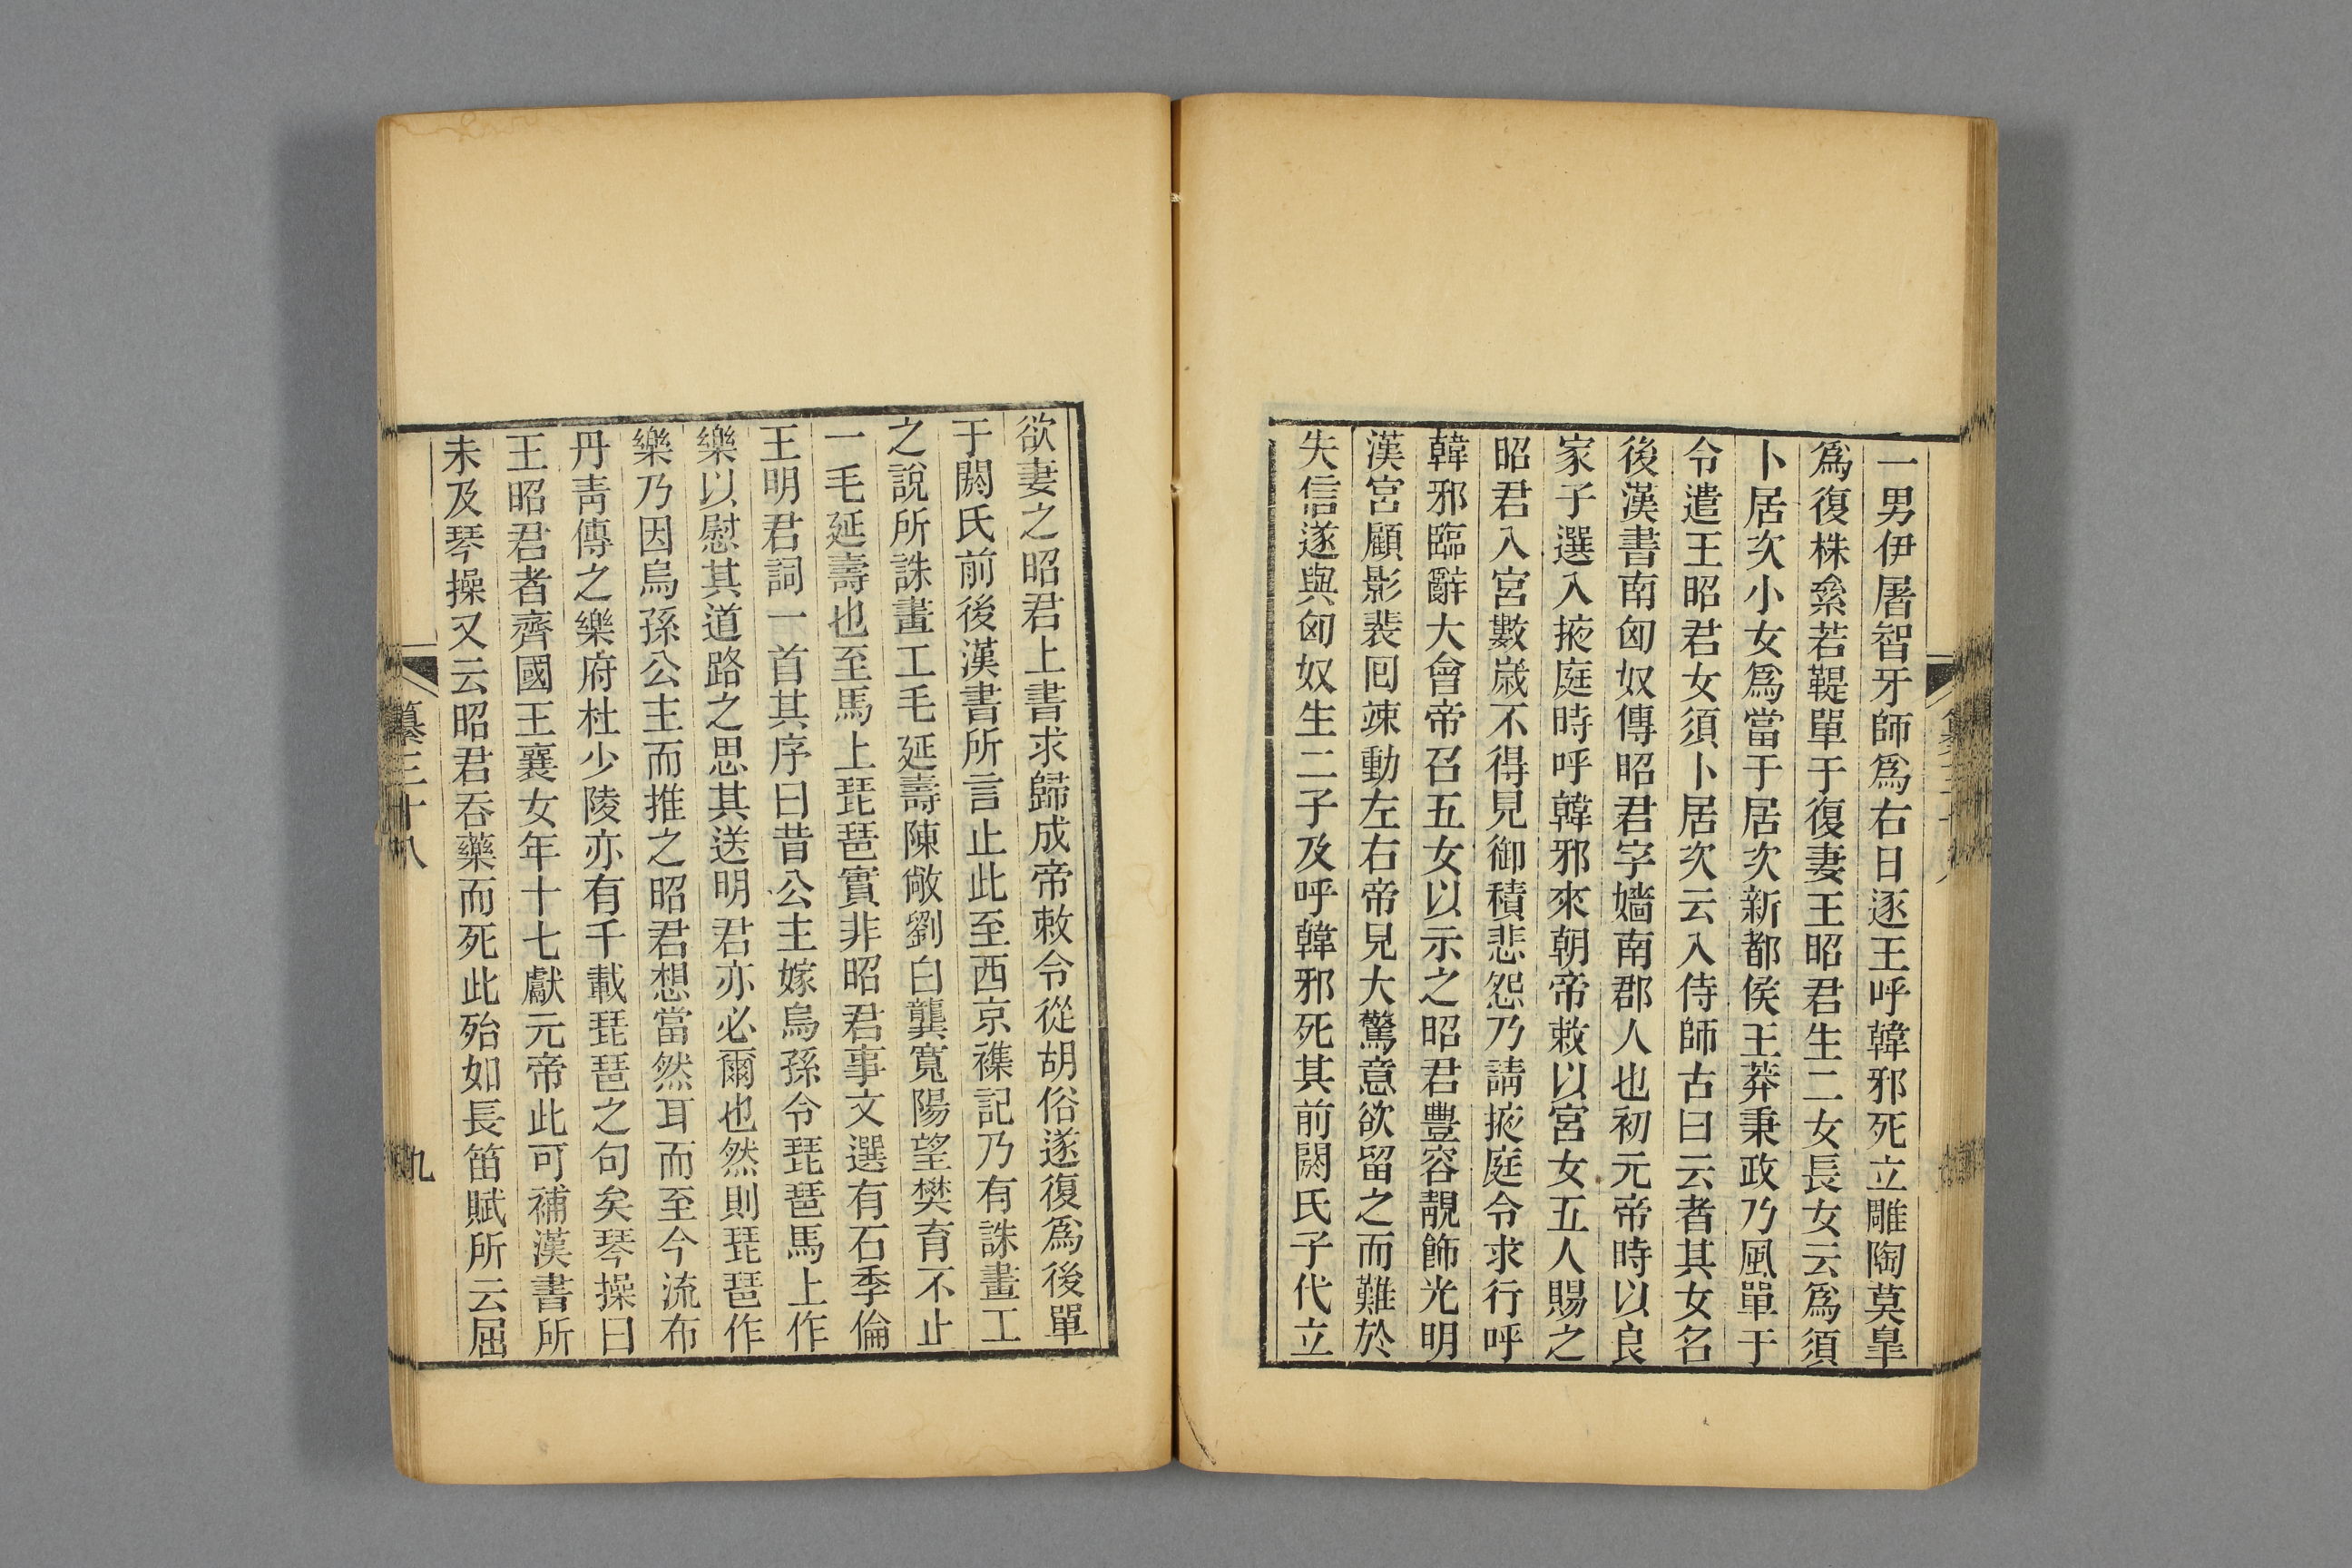 一男伊屠智牙師爲右日逐王呼韓邪死立雕陶莫臯
爲復株絫若鞮單于復妻王昭君生二女長女云爲須
卜居次小女爲當于居次新都侯王莽秉政乃風單于
令遣王昭君女須卜居次云入侍師古曰云者其女名
後漢書南匈奴傳昭君字嬙南郡人也初元帝時以良
家子選入掖庭時呼韓邪來朝帝敕以宮女五人賜之
昭君入宮數歲不得見御積悲怨乃請掖庭令求行呼
韓邪臨辭大會帝召五女以示之昭君豐容靚飾光明
漢宮顧影裴回竦動左右帝見大驚意欲留之而難於
失信遂與匈奴生二子及呼韓邪死其前閼氏子代立
欲妻之昭君上書求歸成帝敕令從胡俗遂復爲後單
于閼氏前後漢書所言止此至西京襍記乃有誅畫工
之說所誅畫工毛延壽陳敞劉白龔寬陽望樊育不止
一毛延壽也至馬上琵琶實非昭君事文選有石季倫
王明君詞一首其序曰昔公主嫁烏孫令琵琶馬上作
樂以慰其道路之思其送明君亦必爾也然則琵琶作
樂乃因烏孫公主而推之昭君想當然耳而至今流布
丹靑傳之樂府杜少陵亦有千載琵琶之句矣琴操曰
王昭君者齊國王襄女年十七獻元帝此可補漢書所
未及琴操又云昭君吞藥而死此殆如長笛賦所云屈
纂三十八
九